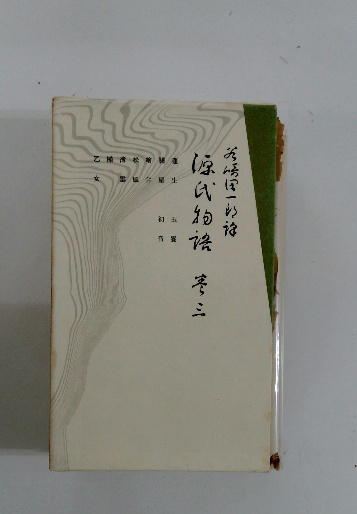 谷崎潤一郎訳
源氏物語 巻三
蓬生
関屋
絵合
松風
薄雲
槿
乙女
玉鬘
初音